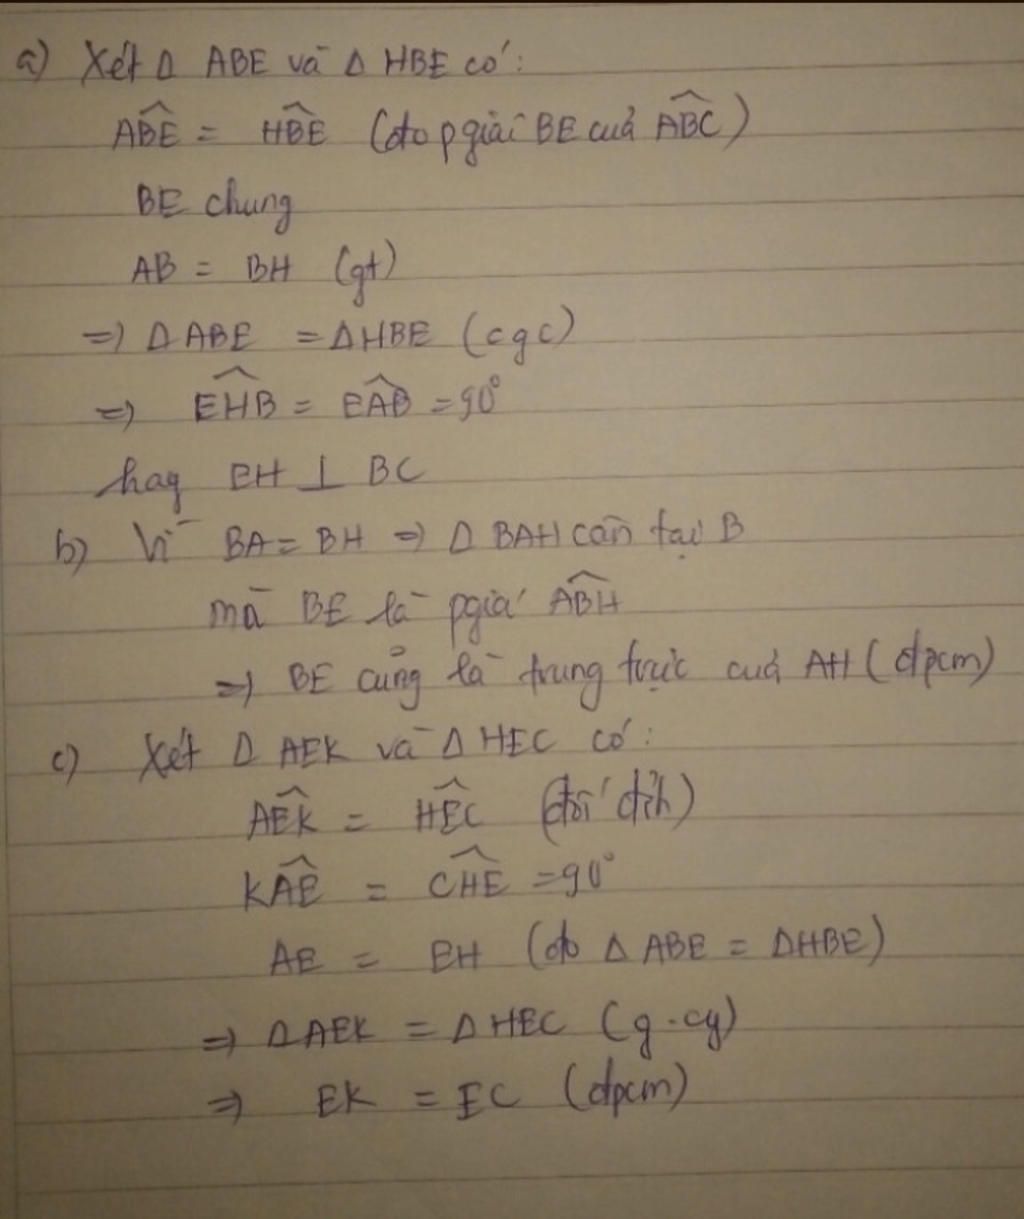 a) Xét Δ ABE và Δ HBE có:
ABE^ = HBE^ (do pgiác BE của ABC^)
BE chung
AB = BH (gt)
=> Δ ABE = Δ HBE (cgc)
=> EHB^ = EAB^ = 90°
hay EH ⊥ BC
b) Vì BA = BH => Δ BAH cân tại B
mà BE là pgiác ABH^
=> BE cũng là trung trực của AH (đpcm)
c) Xét Δ AEK và Δ HEC có:
AEK^ = HEC^ (đối đỉnh)
KAE^ = CHE^ = 90°
AE = EH (do Δ ABE = ΔHBE)
=> Δ AEK = Δ HEC (g.cg)
=> EK = EC (đpcm)